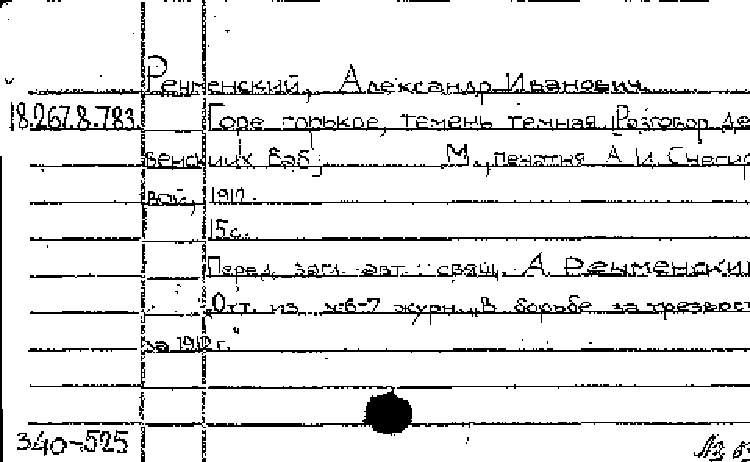 Ременский, Александр Иванович
18.267.8.783. Горе горькое, темень темная [Разговор де
венских баб].      М., печатня А И Снегир
вой, 1912.
15 с.
Перед загл. авт.: свящ. А Ременский
Отт. из №6-7 журн. „В борьбе за трезвост
за 1912 г."
340-525